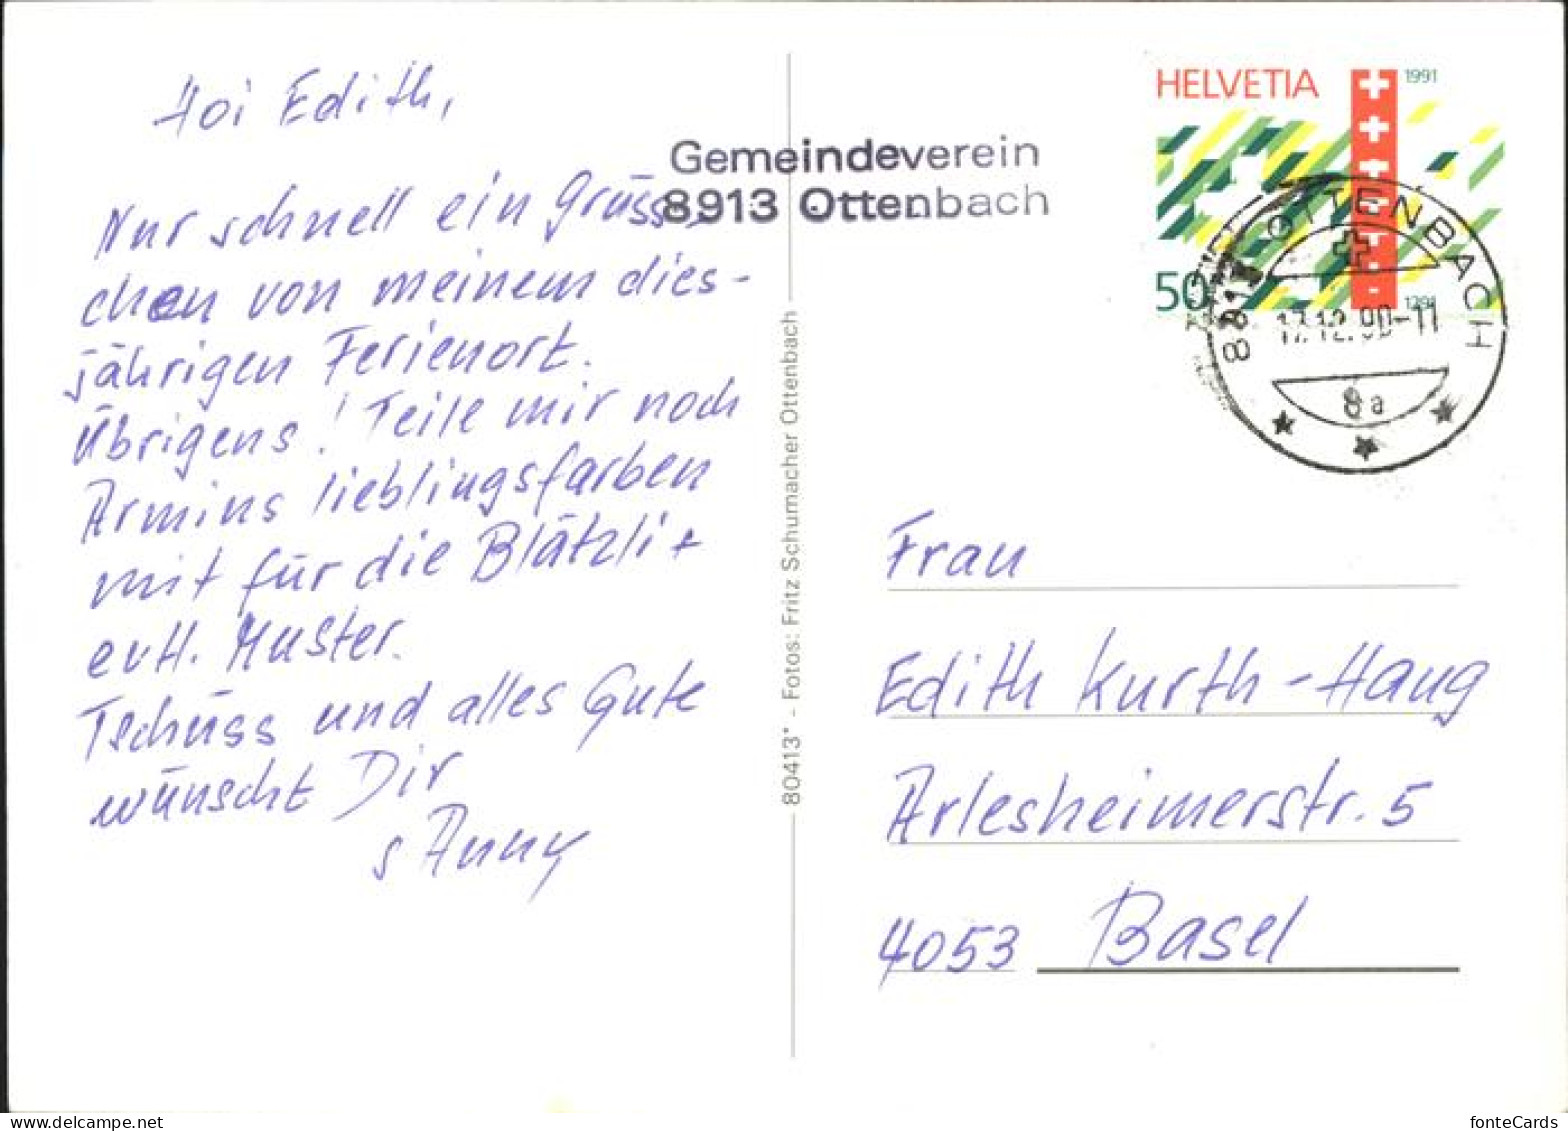 Hoi Edith,
Nur schnell ein Grüss-
chen von meinem dies-
jährigen Ferienort.
Übrigens! Teile mir noch
Armins lieblingsfarben
mit für die Blätzli +
evtl. Muster.
Tschüss und alles Gute
wünscht Dir
s Anny
Gemeindeverein
8913 Ottenbach
80413* - Fotos: Fritz Schumacher Ottenbach
HELVETIA
1991
50
1291
8913 OTTENBACH
17.12.90-11
8a
Frau
Edith Kurth-Haug
Arlesheimerstr. 5
4053 Basel
delcampe.net
fonteCards